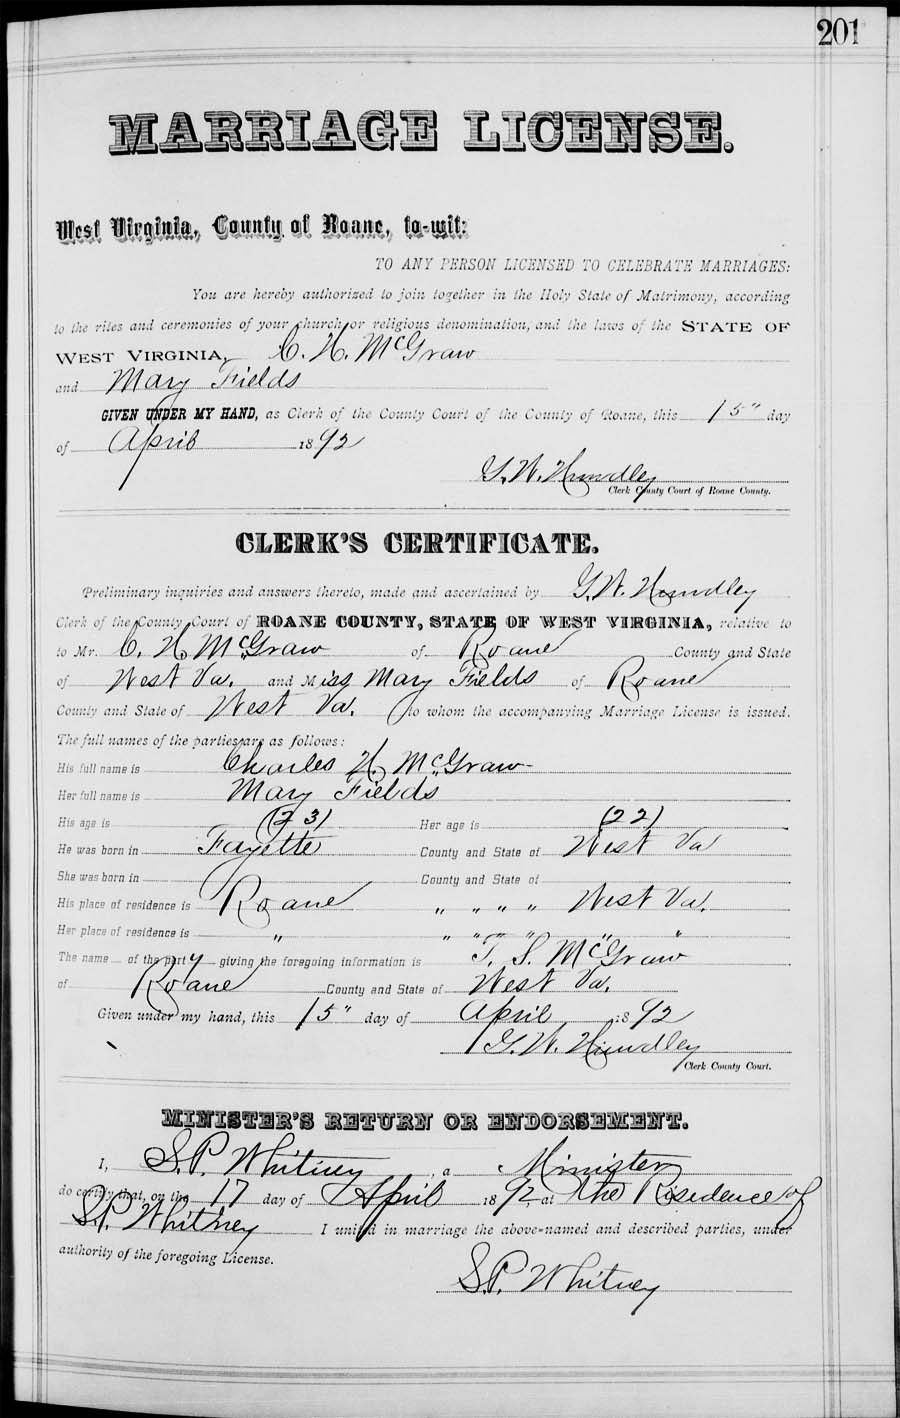 201
MARRIAGE LICENSE.
West Virginia, County of Roane, to-wit:
TO ANY PERSON LICENSED TO CELEBRATE MARRIAGES:
You are hereby authorized to join together in the Holy State of Matrimony, according
to the rites and ceremonies of your church or religious denomination, and the laws of the STATE OF
WEST VIRGINIA, C. H. McGraw
and Mary Fields
GIVEN UNDER MY HAND, as Clerk of the County Court of the County of Roane, this 15" day
of April 1892
G. W. Hundley
Clerk County Court of Roane County.
CLERK'S CERTIFICATE.
Preliminary inquiries and answers thereto, made and ascertained by G. W. Hundley
Clerk of the County Court of ROANE COUNTY, STATE OF WEST VIRGINIA, relative to
to Mr. C. H McGraw of Roane County and State
of West Va. and Miss Mary Fields of Roane
County and State of West Va. to whom the accompanying Marriage License is issued.
The full names of the parties are as follows:
His full name is Charles H. McGraw
Her full name is Mary Fields
His age is (23) Her age is (22)
He was born in Fayette County and State of West Va
She was born in County and State of
His place of residence is Roane " " " " West Va.
Her place of residence is " " " " " " "
The name of the party giving the foregoing information is T. S. McGraw
of Roane County and State of West Va.
Given under my hand, this 15" day of April 1892
G. W. Hundley
Clerk County Court.
MINISTER'S RETURN OR ENDORSEMENT.
I, S.P. Whitney, a Minister
do certify that, on the 17 day of April 1892, at the Risedence of
S.P. Whitney I united in marriage the above-named and described parties, under
authority of the foregoing License.
S.P. Whitney